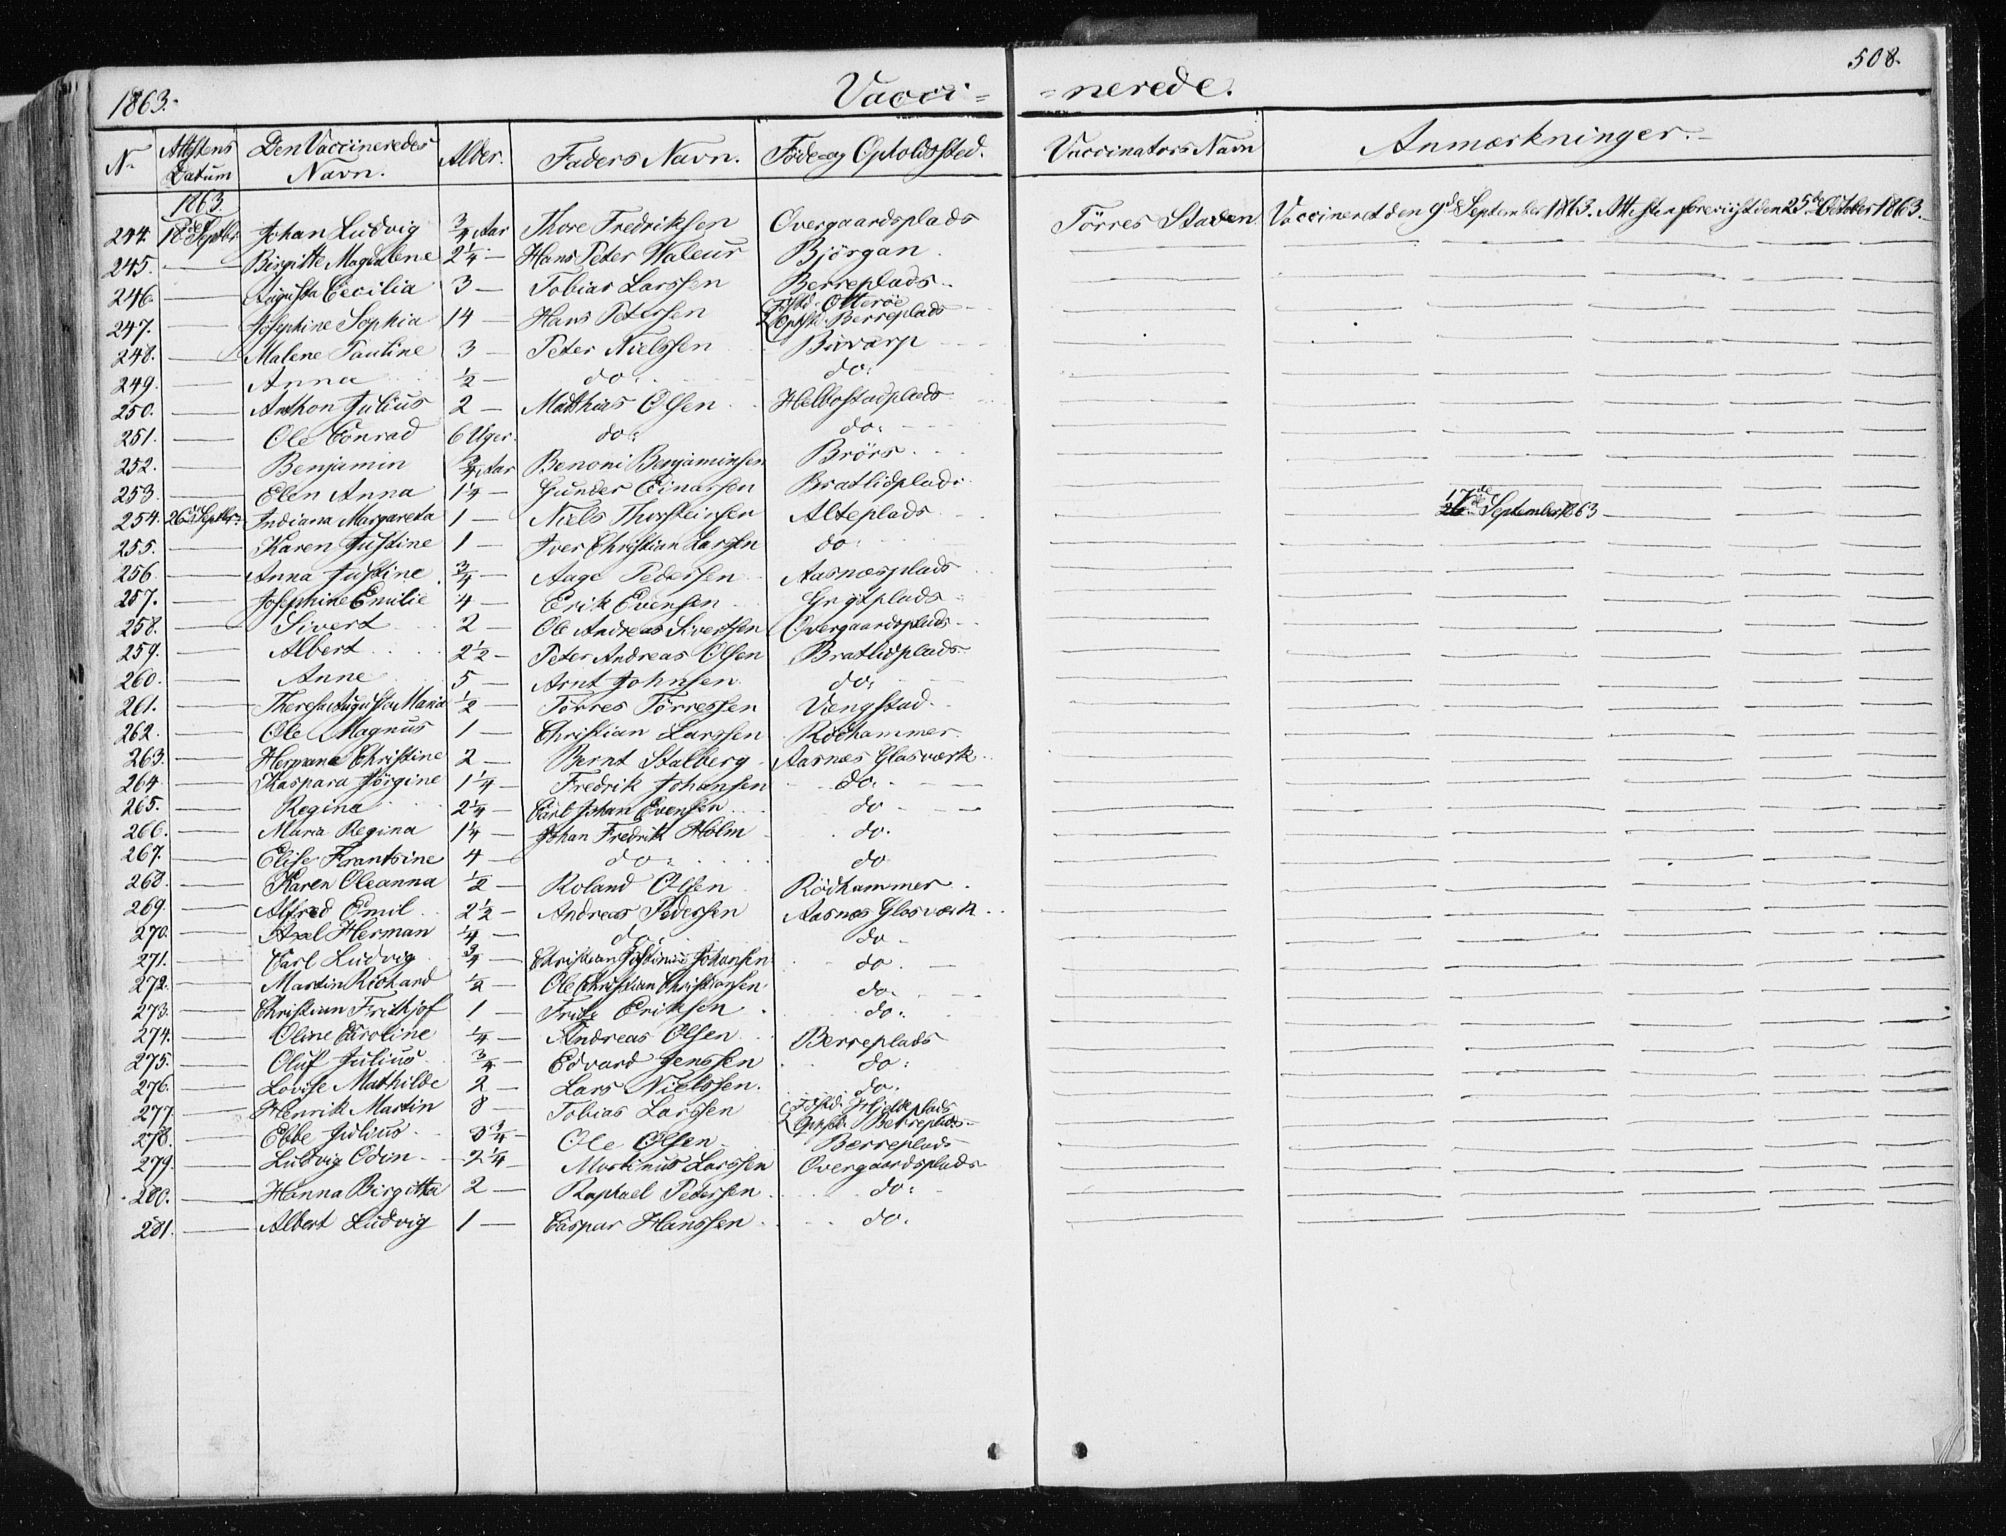 508.
1863.- Vacci= =nerede.
N. Attestens Datum Den Vaccineredes Navn. Alder. Faders Navn. Føde og Opholdssted. Vaccinators Navn Anmærkninger.-
1863.
244. 18de Septbr Johan Ludvig 3/4 Aar Thore Fredriksen Overgaardsplads Törres Staven Vaccineret den 9de September 1863. Attesten foreviist den 25de October 1863.
245. — Birgitte Magdalene 2 1/4 — Hans Peter Waleur Björgan.
246. — Augusta Cecilia 3 — Tobias Larssen Berreplads.
247. — Josephine Sophia 14 — Hans Petersen Fdstd: Otteröe Ophstd: Berreplads
248. — Malene Pauline 3 — Peter Nielssen Bævarp
249. — Anna 1/2 — do: do:
250. — Anthon Julius 2 — Matthias Olsen Helbostadplads
251. — Ole Conrad 6 Uger. do: do:
252. — Benjamin 3/4 Aar Benoni Benjaminsen Brörs
253. — Elen Anna 1 1/4 — Gunder Einarsen Bratlidplads
254. 26de Septbr: Indiana Margareta 1 — Niels Thorsteinsen Alteplads 17de September 1863
255. — Karen Justine 1 — Iver Christian Larssen do
256. — Anna Justine 3/4 — Aage Pedersen Aasnæsplads
257. — Josephine Emilie 4 — Erik Evensen
258. — Sivert 2 — Ole Andreas Sivertsen Overgaardsplads
259. — Albert 2 1/2 — Peter Andreas Olsen Bratlidplads
260. — Anne 5 — Arnt Johnsen do:
261. — Theresa Augusta Maria 1/2 — Törres Törressen Vængstad
262. — Ole Magnus 1 — Christian Larssen Rödhammer
263. — Hermana Christine 2 — Bernt Stalberg Aasnæs Glasværk
264. — Kaspara Jörgine 1 1/4 — Fredrik Johansen do.
265. — Regina 2 1/4 — Carl Johan Evensen do
266. — Maria Regina 1 1/4 — Johan Fredrik Holm do.
267. — Elise Frantsine 4 — do: do
268. — Karen Oleanna 1/2 — Roland Olsen Rödhammer.
269. — Alfred Emil 2 1/2 — Andreas Pedersen Aasnæs Glasværk
270. — Axel Herman 1/4 — do: do
271. — Carl Ludvig 3/4 — Christian Justinus Johansen do
272. — Martin Richard 1/2 — Ole Christian Christiansen do.
273. — Christian Frithjof 1 — Fritz Eriksen do:
274. — Oline Caroline 1/4 — Andreas Olsen Berreplads
275. — Oluf Julius 3/4 — Edvard Jenssen do:
276. — Lovise Mathilde 2 — Lars Nielssen. do.
277. — Henrik Martin 8 — Tobias Larssen Fdstd: plads Ophstd: Berreplads
278. — Ebbe Julius 3/4 — Ole Olsen Berreplads
279. — Ludvig Odin 2 1/4 — Martinus Larssen Overgaardsplads
280. — Hanna Birgitta 2 — Raphael Petersen do:
281. — Albert Ludvig 1 — Caspar Hanssen do.